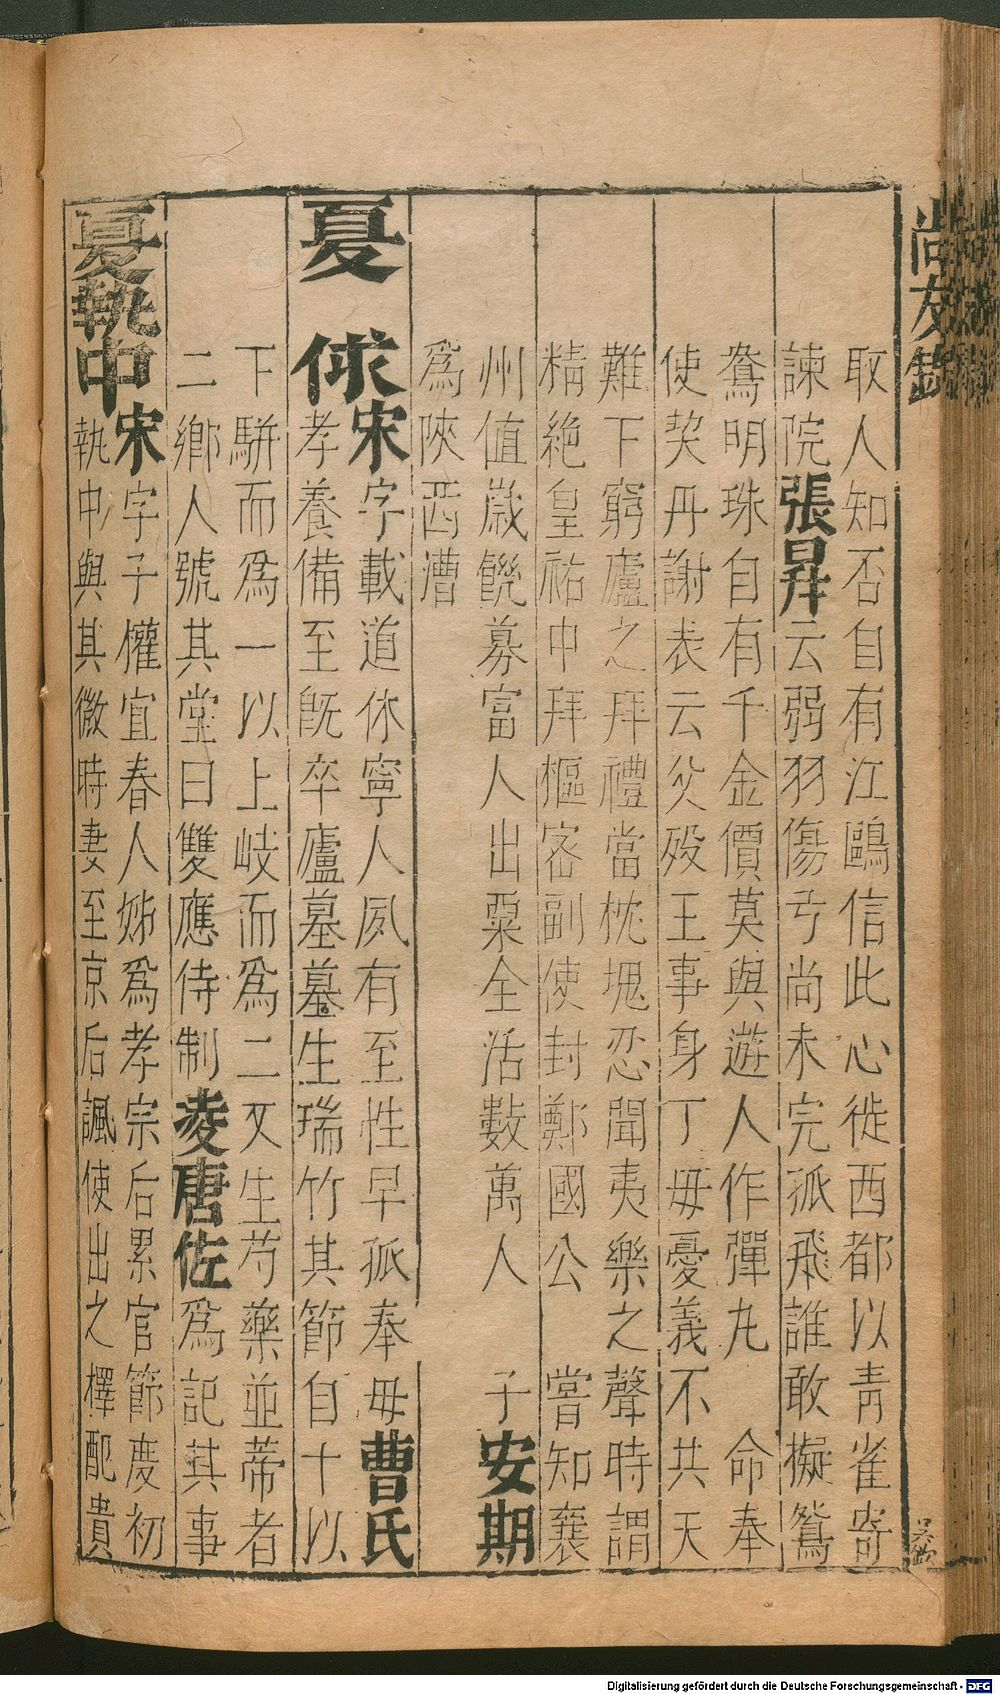 尚友錄
取人知否自有江鷗信此心徙西都以青雀寄
諫院張昪云弱羽傷弓尚未完孤飛誰敢擬鴛
鴦明珠自有千金價莫與遊人作彈丸 命奉
使契丹謝表云父殁王事身丁母憂義不共天
難下穹廬之拜禮當枕塊忍聞夷樂之聲時謂
精絕皇祐中拜樞密副使封鄭國公 嘗知襄
州值歲饑募富人出粟全活數萬人 子安期
為陝西漕
夏俅宋字載道休寧人夙有至性早孤奉母曹氏
孝養備至既卒廬墓墓生瑞竹其節自十以
下駢而為一以上岐而為二又生芍藥並蒂者
二鄉人號其堂曰雙應侍制凌唐佐為記其事
夏執中宋字子權宜春人姊為孝宗后累官節度初
執中與其微時妻至京后諷使出之擇配貴
Digitalisierung gefördert durch die Deutsche Forschungsgemeinschaft - DFG